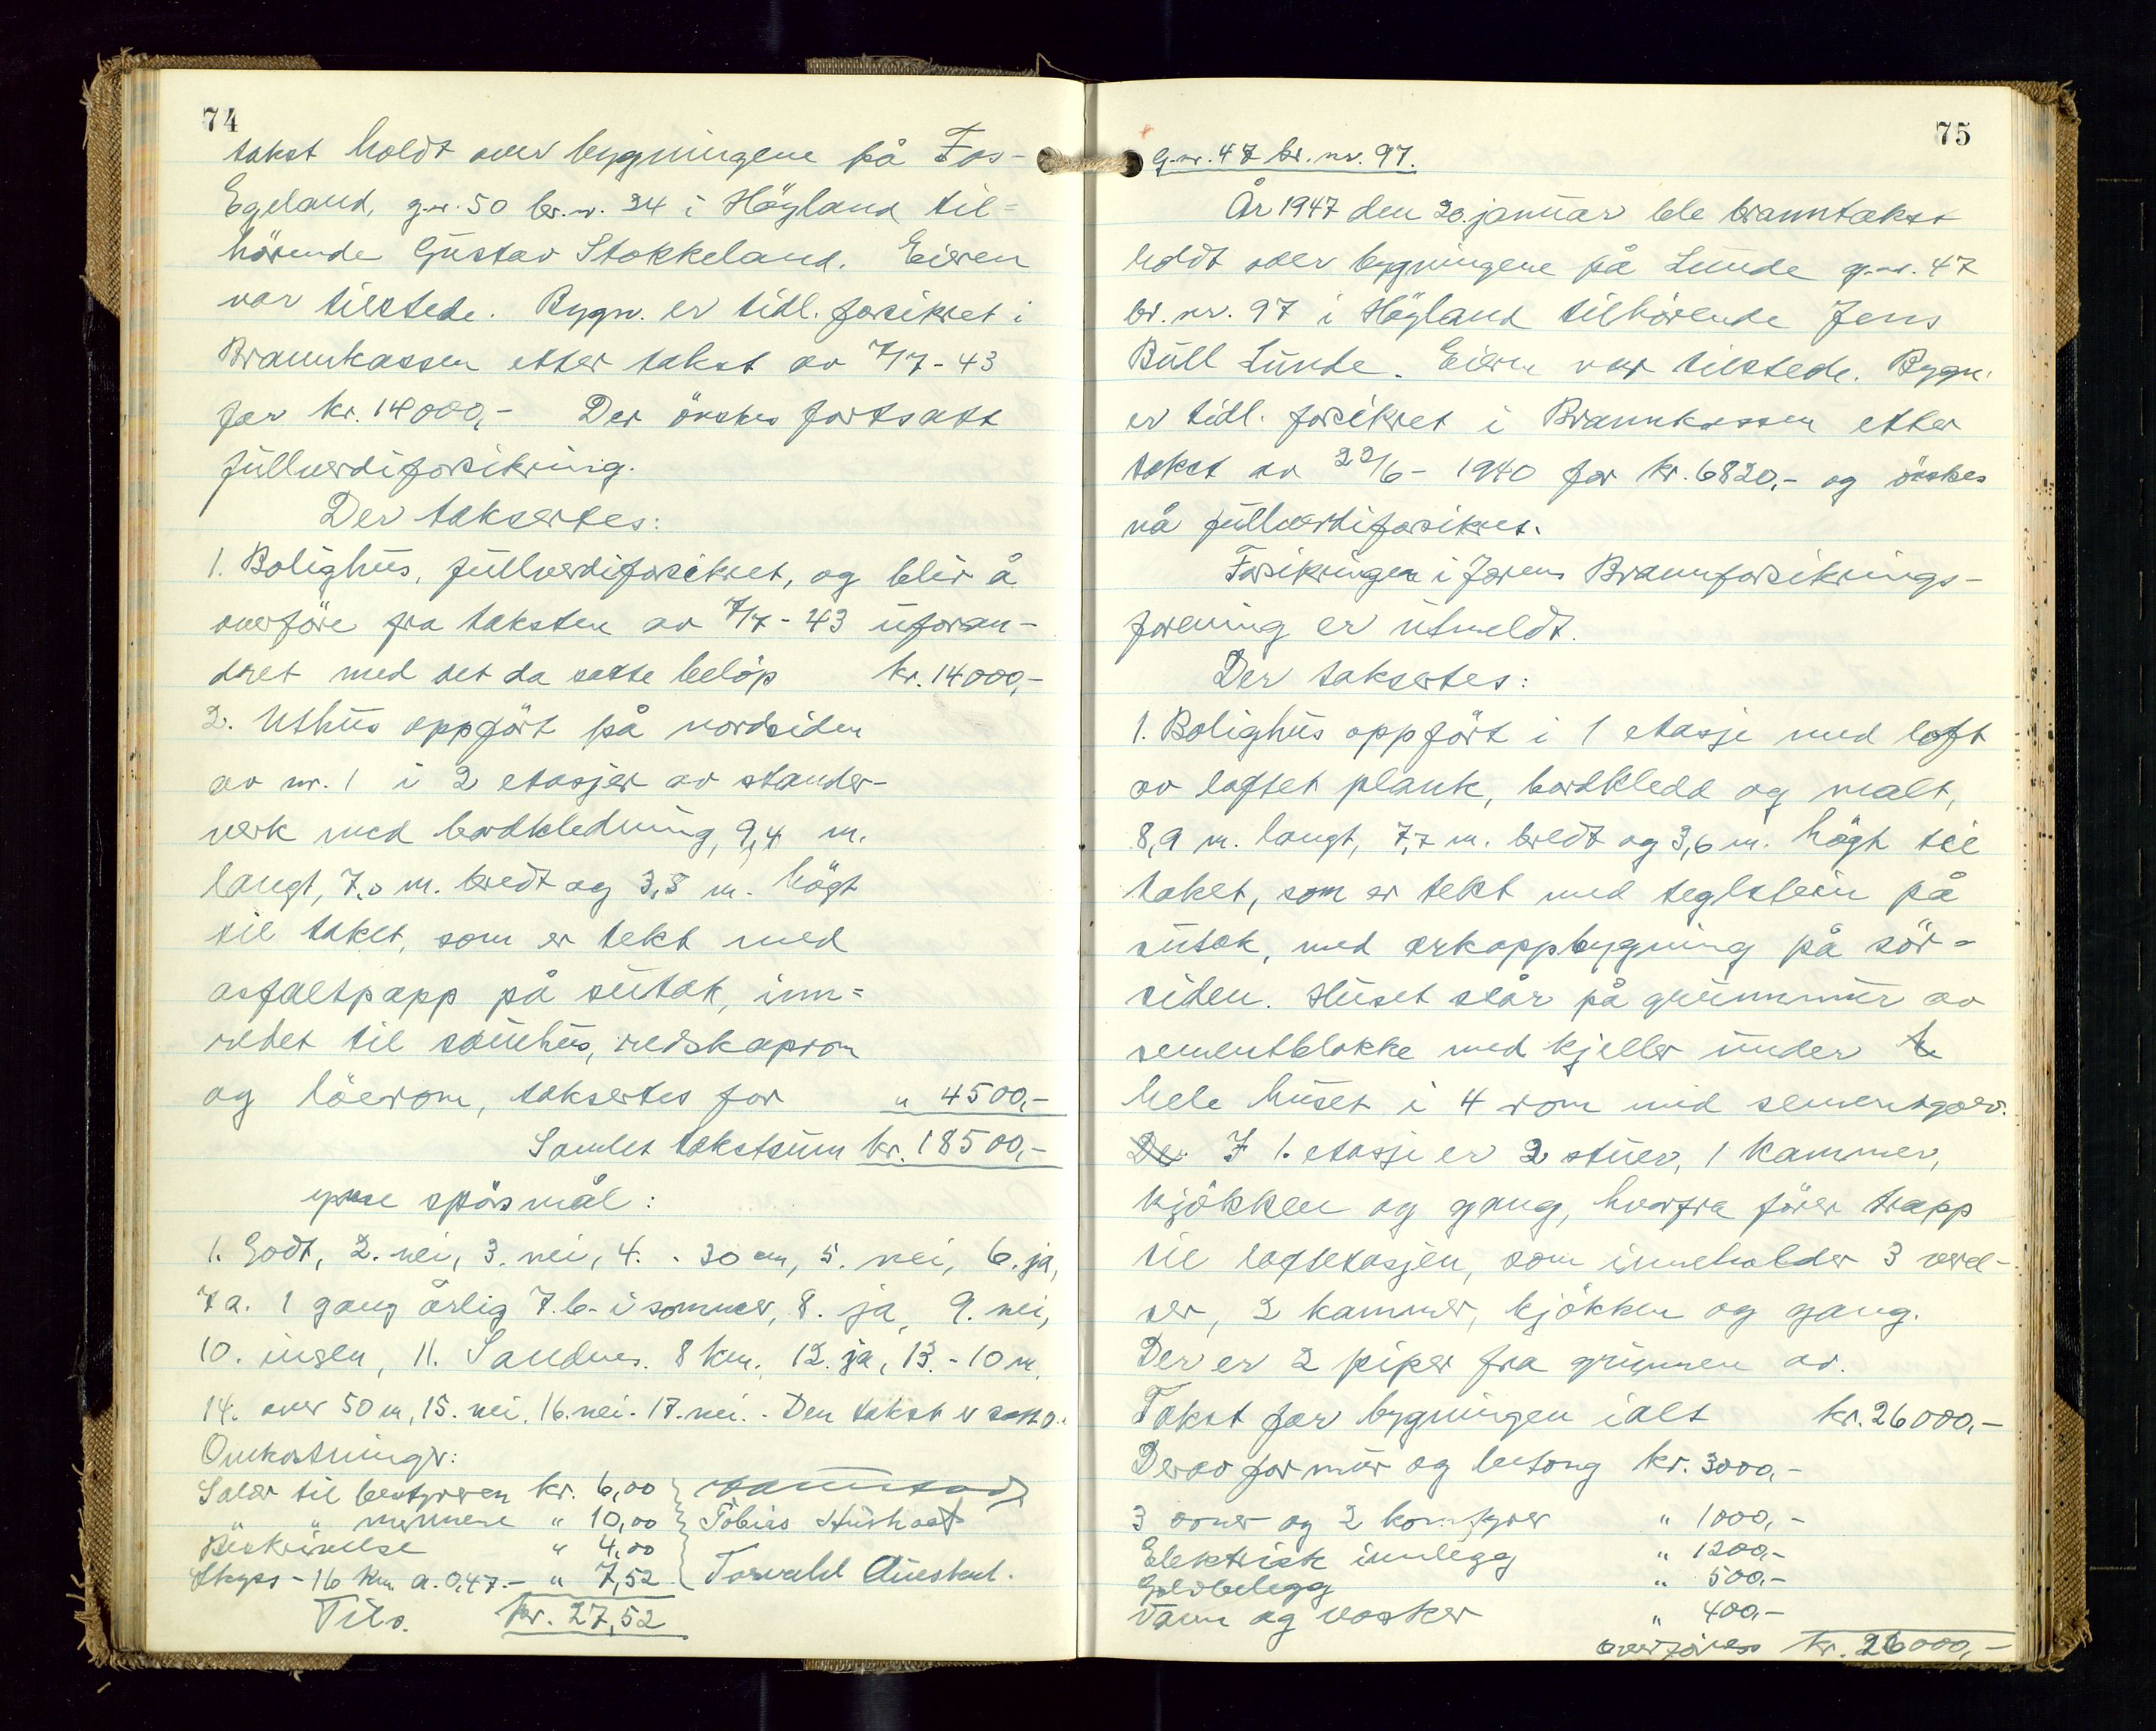 74
takst holdt over bygningene på Fos-
Egeland, g.nr. 50 br.nr. 34 i Höyland til-
hörende Gustav Stokkeland. Eieren
var tilstede. Bygn. er tidl. forsikret i
Brannkassen etter takst av 7/7-43
for kr. 14000,- Der önskes fortsatt
fullverdiforsikring.
Der taksertes:
1. Bolighus, fullverdiforsikret, og blir å
overföre fra taksten av 7/7-43 uforan-
dret med det da satte belöp kr. 14000,-
2. Uthus oppfört på nordsiden
av nr. 1 i 2 etasjer av stender-
verk med bordkledning, 9,4 m.
langt, 7,0 m. bredt og 3,8 m. högt
til taket, som er tekt med
asfaltpapp på sutak, inn-
redet til sauhus, redskaprom
og löerom, taksertes for " 4500,-
Samlet takstsum kr. 18500,-
spösmål:
1. Godt, 2. nei, 3. nei, 4. - 30 cm, 5. nei, 6. ja,
7 a. 1 gang årlig 7.b. i sommer, 8. ja, 9. nei,
10. ingen, 11. Sandnes. 8 km. 12. ja, 13. - 10 m.
14. over 50 m, 15. nei, 16. nei. 17. nei. - Den takst er satt
Omkostninger:
Salær til bestyreren kr. 6,00
" " mennene " 10,00 Tobias
Beskrivelse " 4,00
Skyss - 16 km a. 0,47 - " 7,52 Torvald Auestad.
Tils. kr. 27,52
75
G.nr. 47 br. nr. 97.
År 1947 den 20. januar ble branntakst
holdt over bygningene på Lunde g.nr. 47
br. nr. 97 i Höyland tilhörende Jens
Bull Lunde. Eieren var tilstede. Bygn.
er tidl. forsikret i Brannkassen etter
takst av 22/6 - 1940 for kr. 6820,- og önskes
nå fullverdiforsikret.
Forsikringen i Jærens Brannforsikrings-
forening er utmeldt.
Der taksertes:
1. Bolighus oppfört i 1 etasje med loft
av laftet plank, bordkledd og malt,
8,9 m. langt, 7,7 m. bredt og 3,6 m. högt til
taket, som er tekt med teglstein på
sutak, med arkoppbygning på sör-
siden. Huset står på grunnmur av
sementblokke med kjeller under
hele huset i 4 rom med sementgolv.
De I 1. etasje er 2 stuer, 1 kammer,
kjökken og gang, hvorfra förer trapp
til loftetasjen, som inneholder 3 værel-
ser, 2 kammer, kjökken og gang.
Der er 2 piper fra grunnen av.
Takst for bygningen ialt kr. 26000,-
Derav for mur og betong kr. 3000,-
3 ovner og 2 komfyrer " 1000,-
Elektrisk innlegg " 1200,-
Golvbelegg " 500,-
Vann og vasker " 400,-
Overföres kr. 26000,-